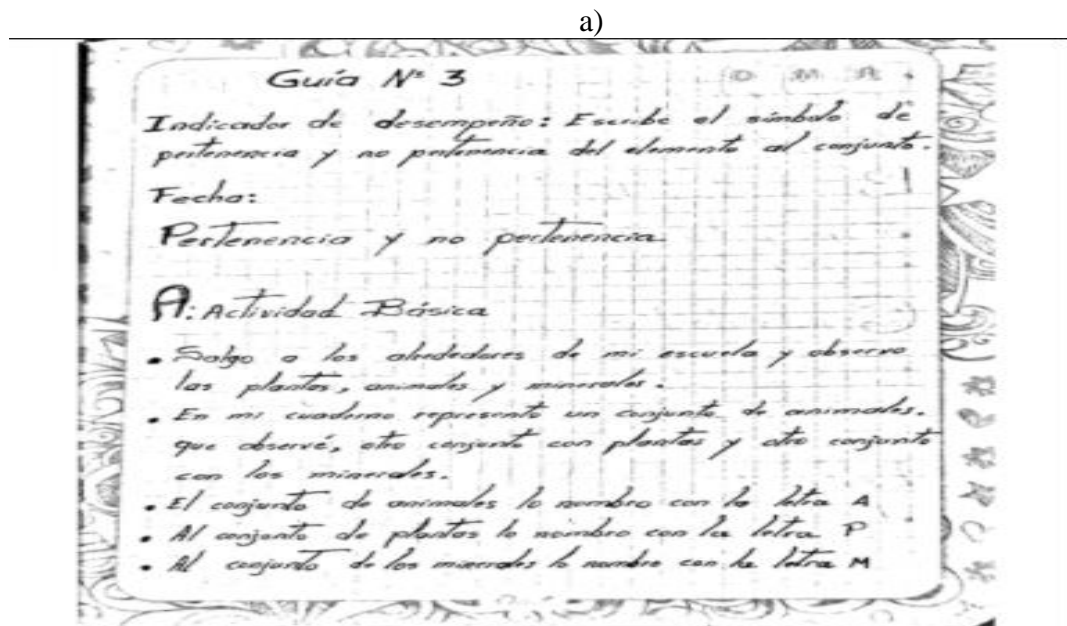 a)
Guía Nº 3
D M A
Indicador de desempeño: Escribe el símbolo de
pertenencia y no pertenencia del elemento al conjunto.
Fecha:
Pertenencia y no pertenencia
A: Actividad Básica
• Salgo a los alrededores de mi escuela y observo
las plantas, animales y minerales.
• En mi cuaderno represento un conjunto de animales.
que observé, otro conjunto con plantas y otro conjunto
con los minerales.
• El conjunto de animales lo nombro con la letra A
• Al conjunto de plantas lo nombro con la letra P
• Al conjunto de los minerales lo nombro con la letra M